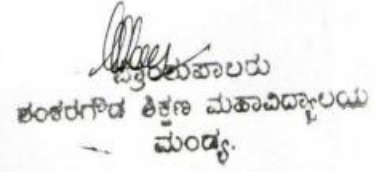 ಪ್ರಾಂಶುಪಾಲರು
ಶಂಕರಗೌಡ ಶಿಕ್ಷಣ ಮಹಾವಿದ್ಯಾಲಯ
ಮಂಡ್ಯ.